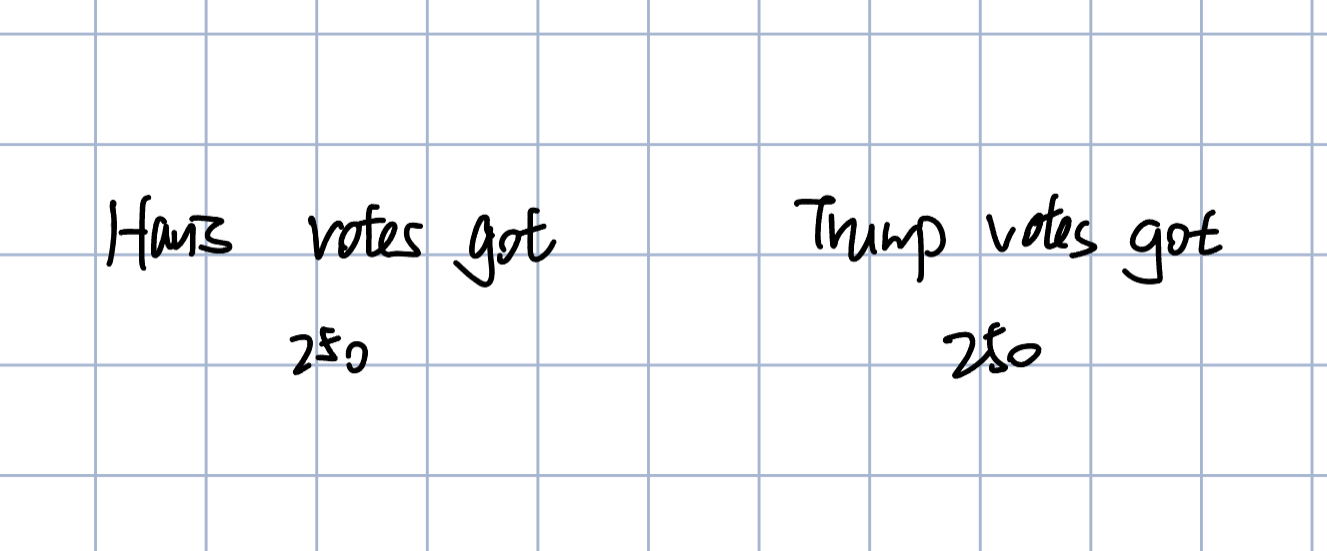 Haris votes got
250
Trump votes got
250